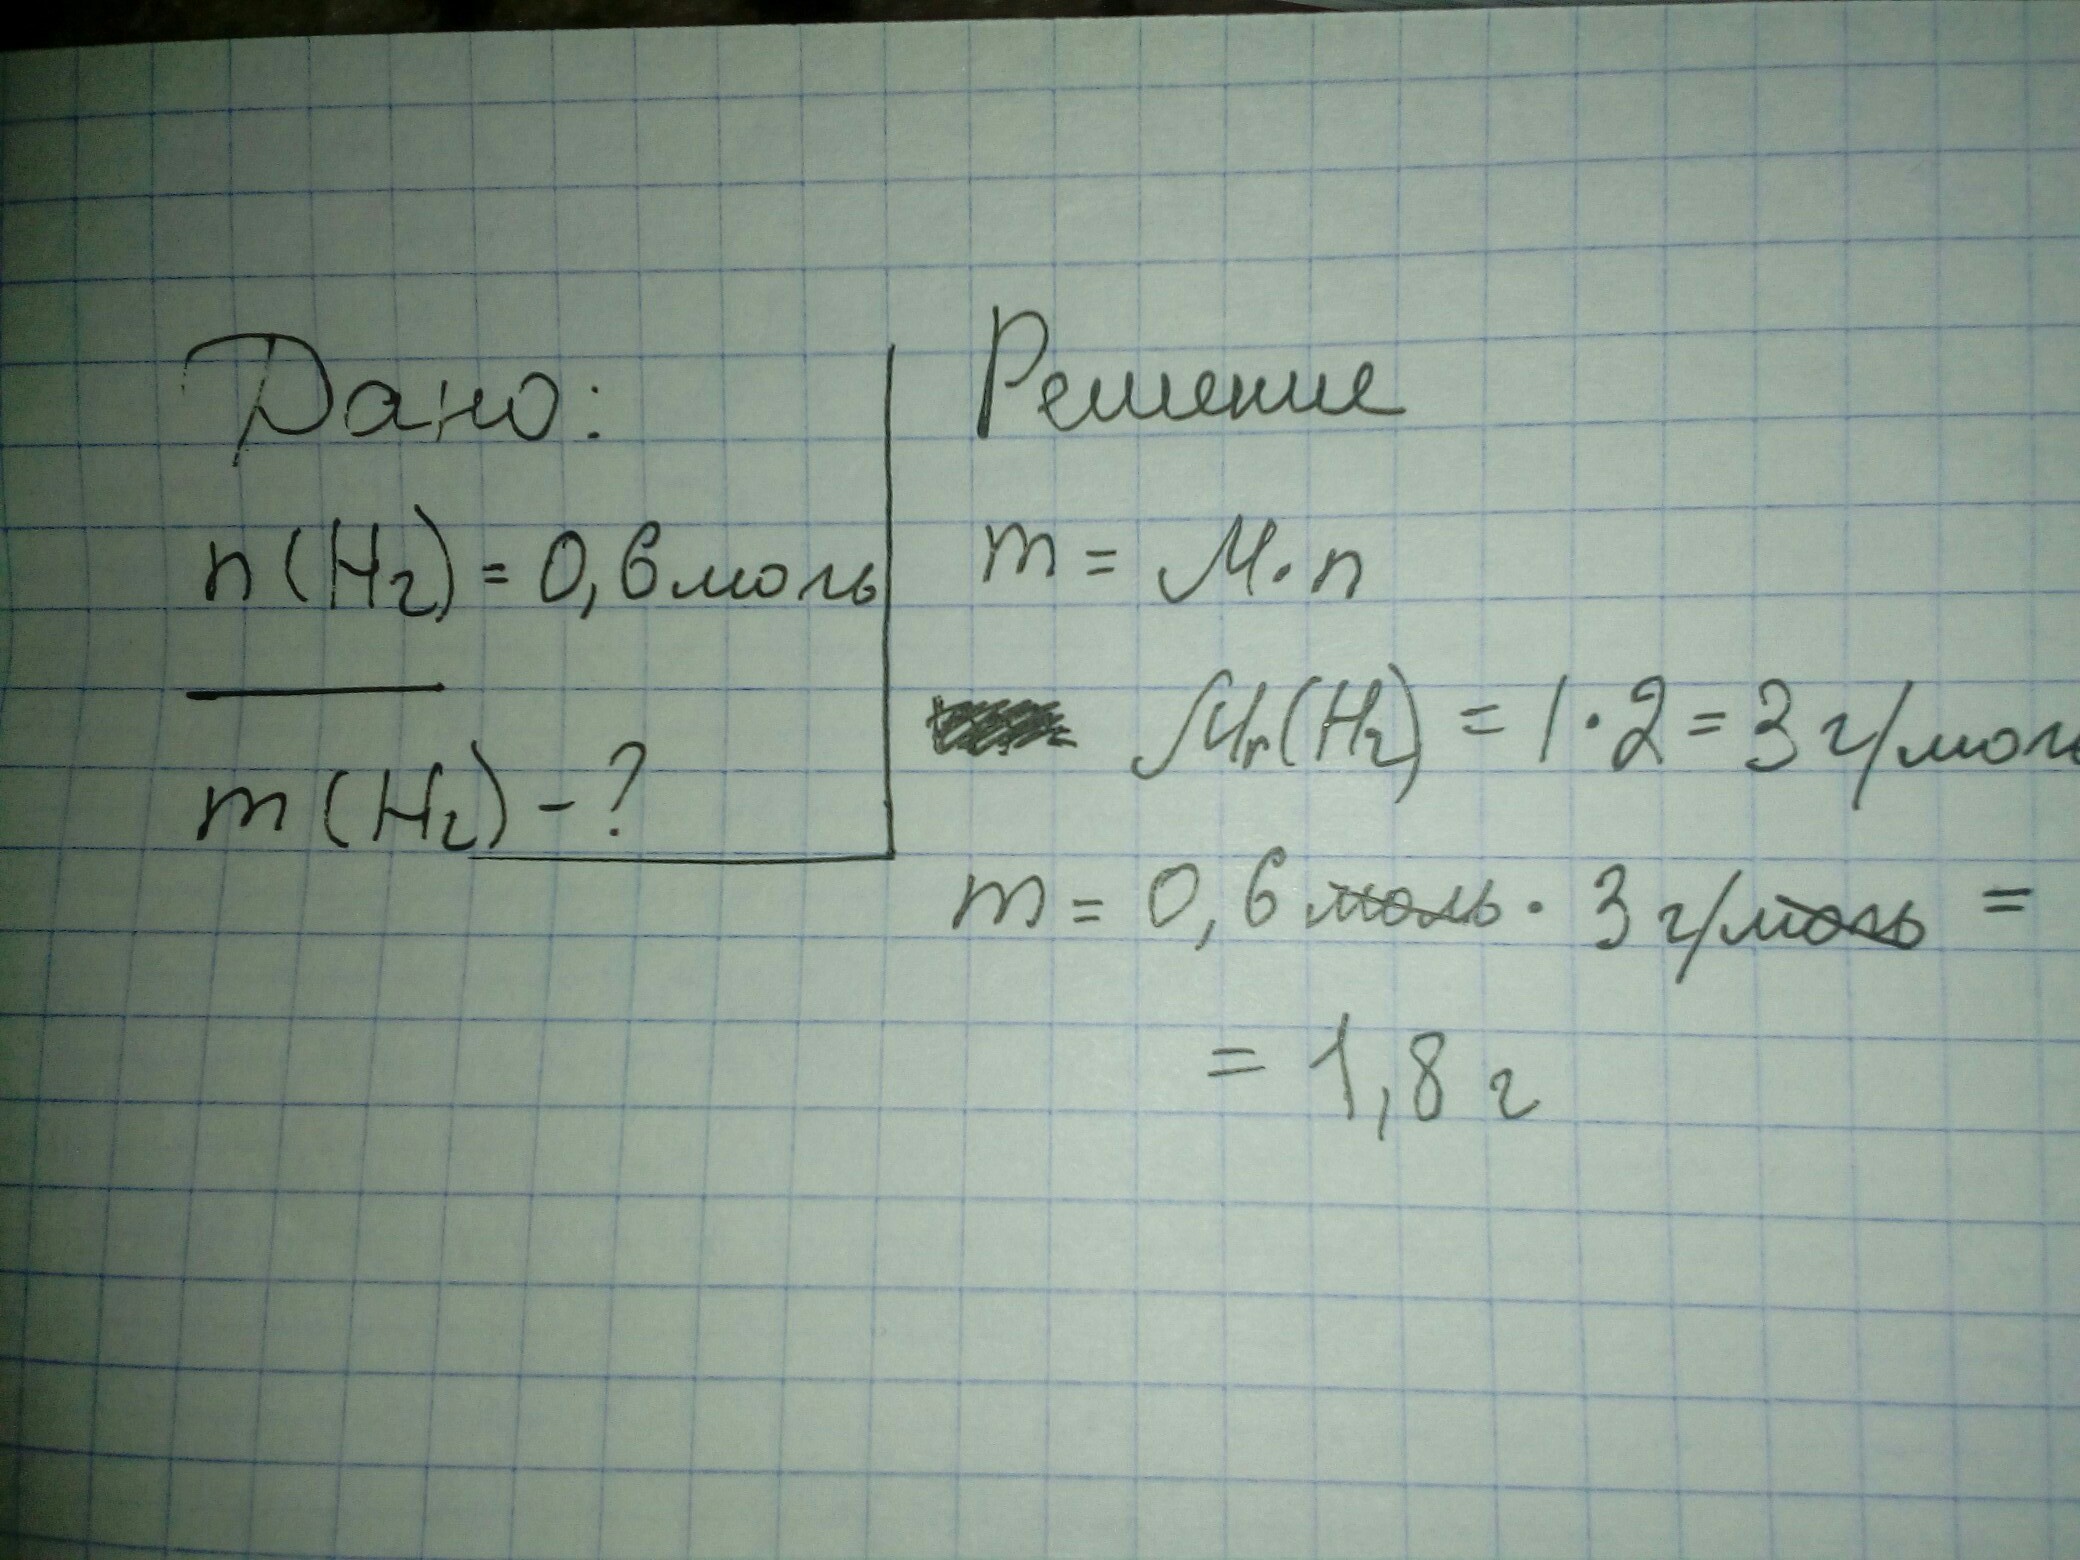 Дано:
n(H₂) = 0,6 моль
m(H₂) - ?
Решение
m = M·n
Mr(H₂) = 1·2 = 3 г/моль
m = 0,6 моль · 3 г/моль =
= 1,8 г